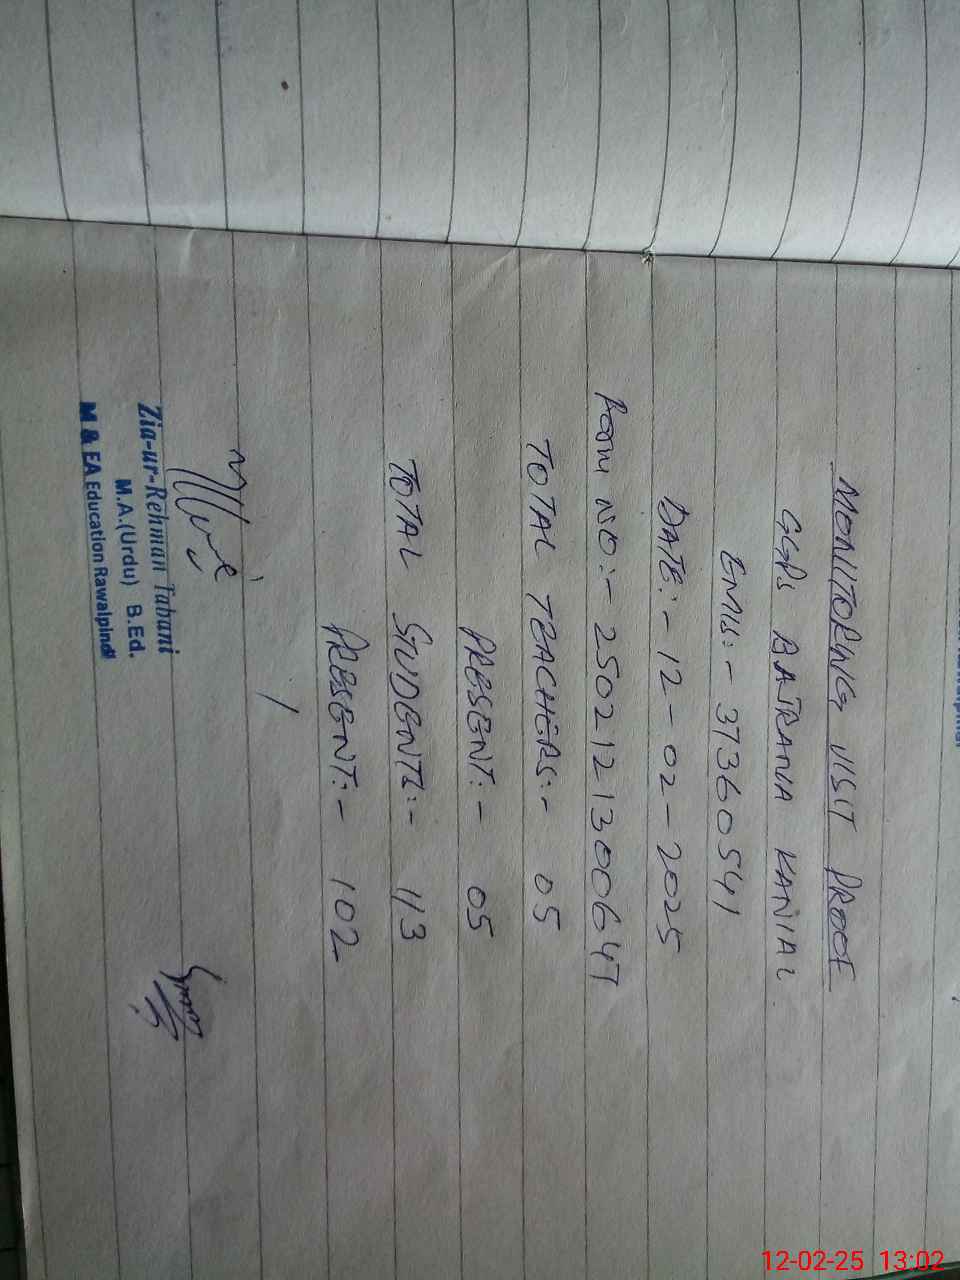 MONITORING VISIT PROOF
GGPS BATRANA KANIAL
EMIS:- 37360541
DATE:- 12-02-2025
ROOM NO:- 2502121300647
TOTAL TEACHERS:- 05
PRESENT:- 05
TOTAL STUDENTS:- 113
PRESENT:- 102
Zia-ur-Rehman Tabani
M.A.(Urdu) B.Ed.
M & EA Education Rawalpindi
12-02-25 13:02